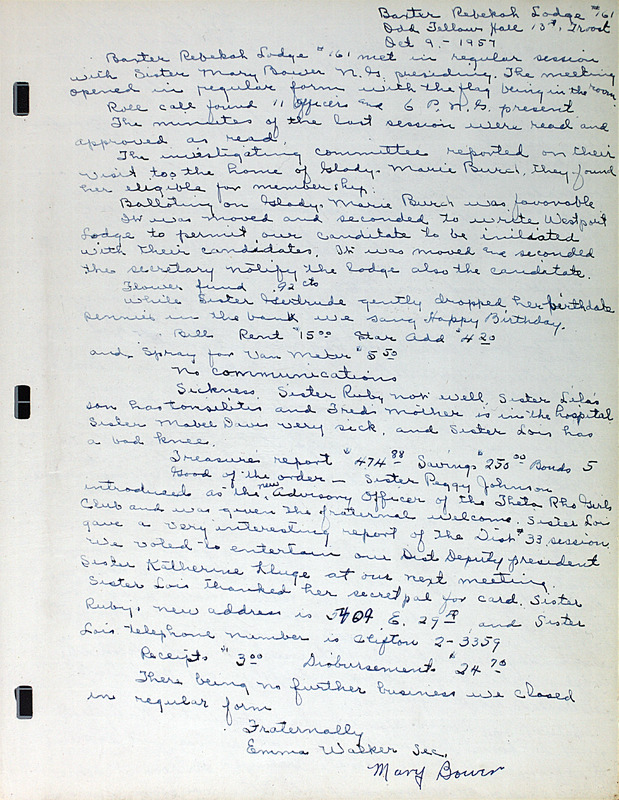 Baxter Rebekah Lodge #161
Odd Fellows Hall 13th, Troost
Oct 9 - 1957
Baxter Rebekah Lodge #161 met in regular session
with Sister Mary Bower N.G. presiding. The meeting
opened in regular form with the flag being in the room.
Roll call found 11 officers and 6 P.N.G. present
The minutes of the last session were read and
approved as read.
The investigating committee reported on their
visit too the home of Gladys Marie Burch, they found
her eligible for membership.
Balloting on Gladys Marie Burch was favorable
It was moved and seconded to write Westport
Lodge to permit our canditate to be initiated
with their candidates. It was moved and seconded
the secretary notify the lodge also the canditate.
Flower fund .92 cts
While Sister Gertrude gently dropped her birthdate
pennies in the bank we sang Happy Birthday.
Bills Rent $15.00 Star Add $4.20
and Spray for Van Meter $5.50
No communications
Sickness. Sister Ruby not well, Sister Lila's
son has tonsilitis and Freds mother is in the hospital
Sister Mabel Davis very sick, and Sister Lois has
a bad knee.
Treasure's report $474.88 Savings $250.00 Bonds 5
Good of the order - Sister Peggy Johnson
introduced as the new Advisory Officer of the Theta Rho Girls
Club and was given the fraternal welcome. Sister Lois
gave a very interesting report of the Dist #33 session.
We voted to entertain our Dist Deputy president
Sister Katherine Kluge at our next meeting.
Sister Lois thanked her secret pal for card. Sister
Ruby's new address is E. 29th and Sister
Lois telephone number is Clifton 2-3359
Receipts $3.00 Disbursements $24.70
There being no further business we closed
in regular form
Fraternally
Emma Walker Sec.
Mary Bower